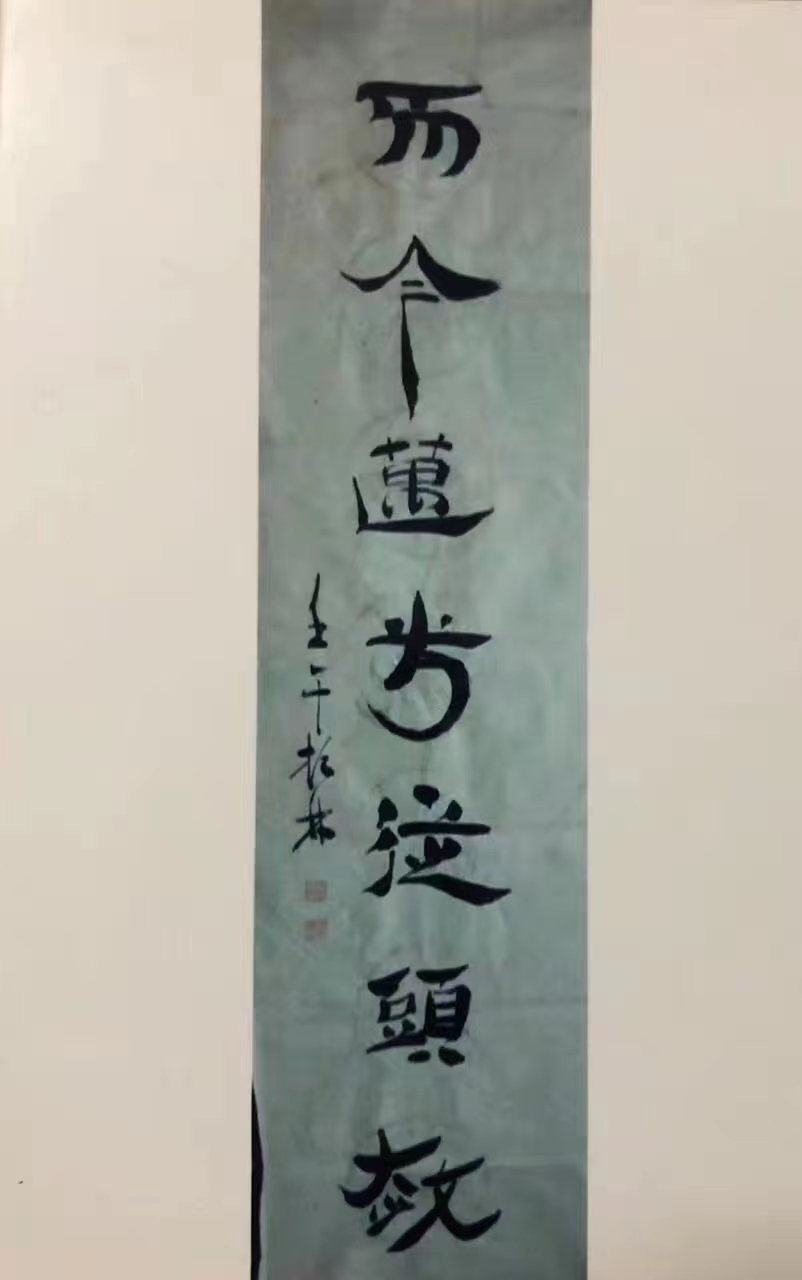 而今邁步從頭越
壬午 林